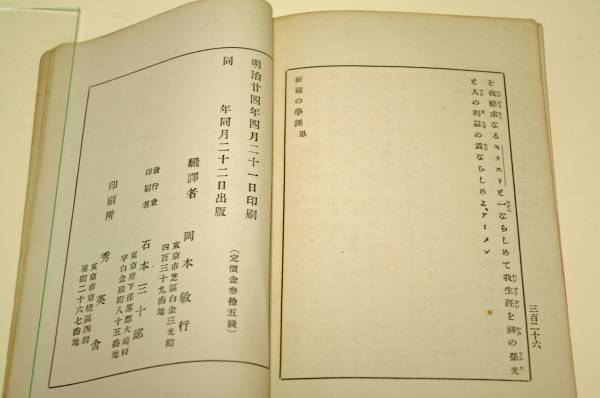 三百二十六
を我願求なるキリストと一ならしめて我生涯を神の榮光
と人の利益の爲ならしめよ、アーメン
の學課畢
明治廿四年四月二十一日印刷
同 年同月二十二日出版
(定價金參拾五錢)
飜譯者 岡本敏行
東京市芝區白金三光町
四百三十九番地
發行兼
印刷者 石本三十郎
東京府下荏原郡大崎村
字白金猿町八十五番地
印刷所 秀英舍
東京市京橋區西紺
屋町二十六七番地